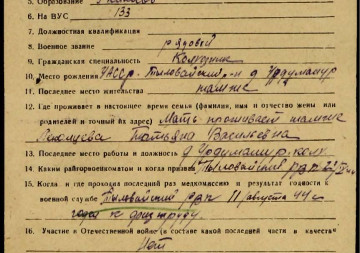 5. Образование
6. На ВУС 133
7. Должностная квалификация
8. Военное звание рядовой
9. Гражданская специальность Колхозник
10. Место рождения УАССР Тыловайский р-н д
11. Последнее место жительства там же
12. Где проживает в настоящее время семья (фамилия, имя и отчество жены или
родителей и точный адрес) Мать проживает там же
Татьяна Васильевна
13. Последнее место работы и должность д колх
14. Каким райгорвоенкоматом и когда призван Тыловайский РВК
15. Когда и где проходил последний раз медкомиссию и результат годности к
военной службе Тыловайский РВК 11 августа 44 г
годен к физтруду
16. Участие в Отечественной войне (в составе какой последней части в качестве
Нет